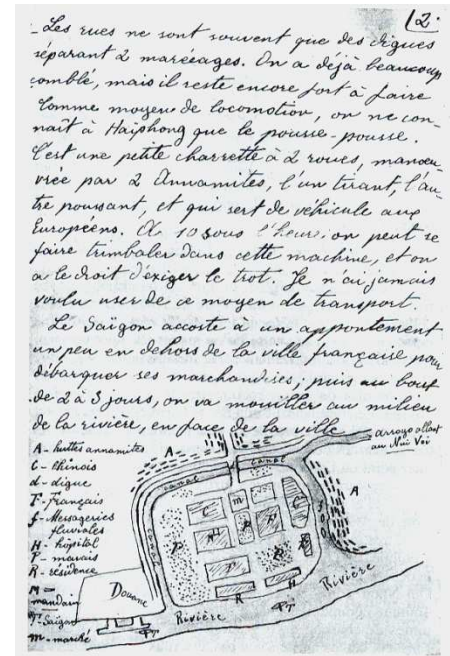 12.
- Les rues ne sont souvent que des digues
séparant 2 marécages. On a déjà beaucoup
comblé, mais il reste encore fort à faire
Comme moyen de locomotion, on ne con-
naît à Haïphong que le pousse-pousse.
C'est une petite charrette à 2 roues, manœu-
vrée par 2 Annamites, l'un tirant, l'au-
tre poussant, et qui sert de véhicule aux
Européens. À 10 sous l'heure, on peut se
faire trimbaler dans cette machine, et on
a le droit d'exiger le trot. Je n'ai jamais
voulu user de ce moyen de transport
Le Saïgon accoste à un appontement
un peu en dehors de la ville française pour
débarquer ses marchandises ; puis au bout
de 2 à 3 jours, on va mouiller au milieu
de la rivière, en face de la ville
arroyo allant
au Nui Voi
A - huttes annamites
C - Chinois
d - digue
F - Français
f - Messageries
fluviales
H - hôpital
P - marais
R - résidence
M =
mandarin
Saïgon
m - marché
A
canal
canal
canal
A
C
m
C
P
H
R
P
F
F
P
R
H
Douane
Rivière
Rivière